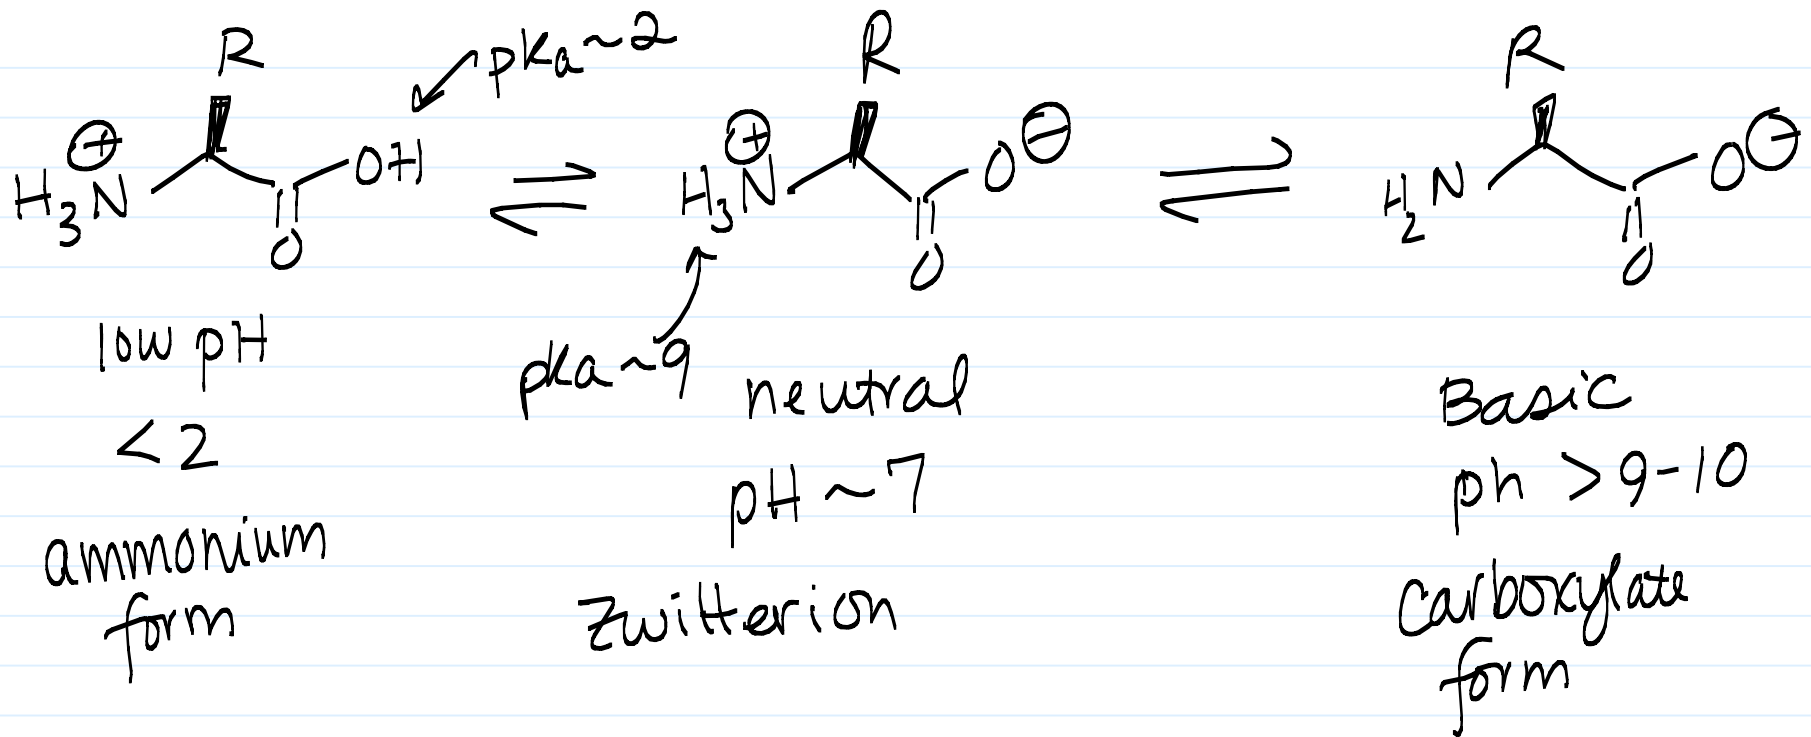 R
pKa~2
R
R
⊕
H₃N
OH
O
⊕
H₃N
O⊖
O
H₂N
O⊖
O
low pH
<2
ammonium
form
pKa~9
neutral
pH~7
Zwitterion
Basic
ph >9-10
Carboxylate
form